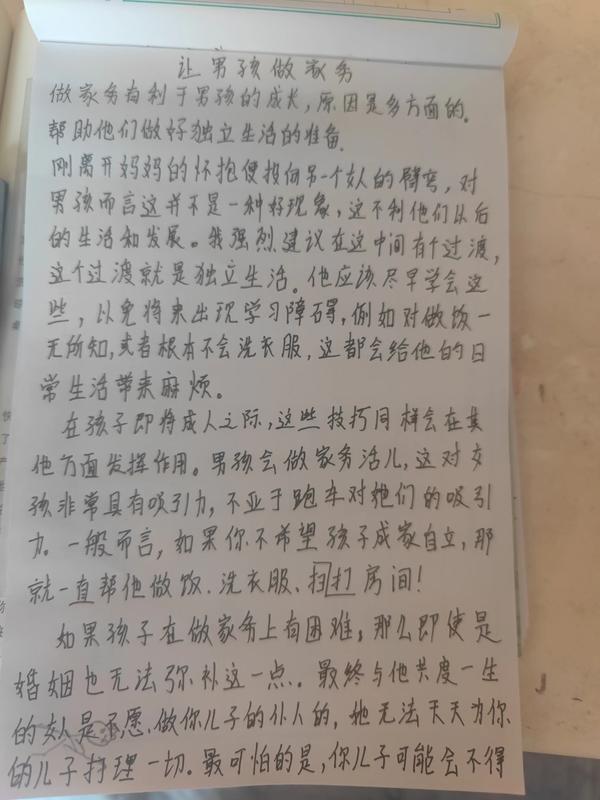 让男孩做家务
做家务有利于男孩的成长，原因是多方面的。
帮助他们做好独立生活的准备.
刚离开妈妈的怀抱便投向另一个女人的臂弯，对
男孩而言这并不是一种好现象，这不利他们以后
的生活和发展。我强烈建议在这中间有个过渡，
这个过渡就是独立生活。他应该尽早学会这
些，以免将来出现学习障碍，例如对做饭一
无所知，或者根本不会洗衣服，这都会给他的日
常生活带来麻烦。
在孩子即将成人之际，这些技巧同样会在其
他方面发挥作用。男孩会做家务活儿，这对女
孩非常具有吸引力，不亚于跑车对她们的吸引
力。一般而言，如果你不希望孩子成家自立，那
就一直帮他做饭、洗衣服、扫打房间！
如果孩子在做家务上有困难，那么即使是
婚姻也无法弥补这一点。最终与他共度一生
的女人是不愿做你儿子的仆人的，她无法天天为你
的儿子打理一切。最可怕的是，你儿子可能会不得